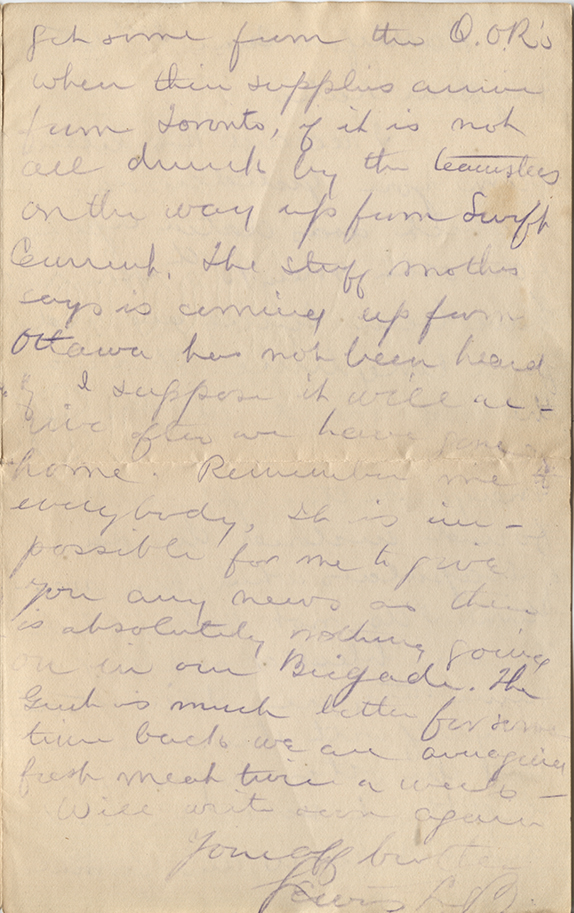 get some from the Q.O.R's
when their supplies arrive
from Toronto, if it is not
all drunk by the teamsters
on the way up from Swift
Current. The stuff mother
says is coming up from
Ottawa has not been heard
of I suppose it will ar-
rive after we have gone
home. Remember me to
everybody, It is im-
possible for me to give
you any news as there
is absolutely nothing going
on in our Brigade. The
Grub is much better for some
time back we are averaging
fresh meat twice a week -
Will write soon again
Your aff brother
Lewis